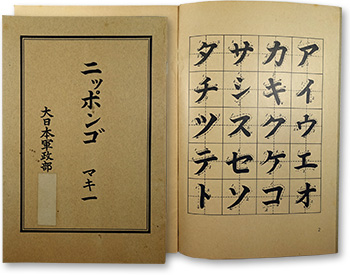 ニッポンゴ
マキ一
大日本軍政部
アイウエオ
カキクケコ
サシスセソ
タチツテト
2